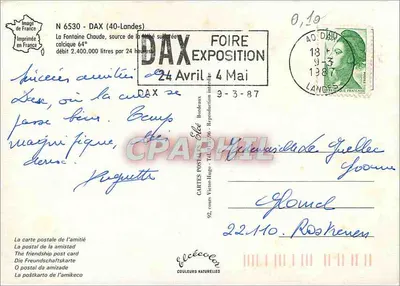 Image
de France
Imprimée
en France
N 6530 - DAX (40-Landes)
La Fontaine Chaude, source de
calcique 64°
débit 2.400.000 litres par 24
DAX FOIRE
EXPOSITION
24 Avril 4 Mai
DAX 9-3-87
40 DAX
18
9-3
1987
LANDES
0,10
Sincères amitiés de
Dax, où la cure se
passe bien. Temps
magnifique, très
doux.
Huguette
CARTES POSTALES
Bordeaux
92, cours Victor-Hugo
Reproduction
CPARHIL
Mademoiselle Le Quellec
Yvonne
Glomel
22110. Rostrenen
La carte postale de l'amitié
La postal de la amistad
The friendship post card
Die Freundschaftskarte
O postal da amizade
La poŝtkarto de l'amikeco
Elcécolor
COULEURS NATURELLES